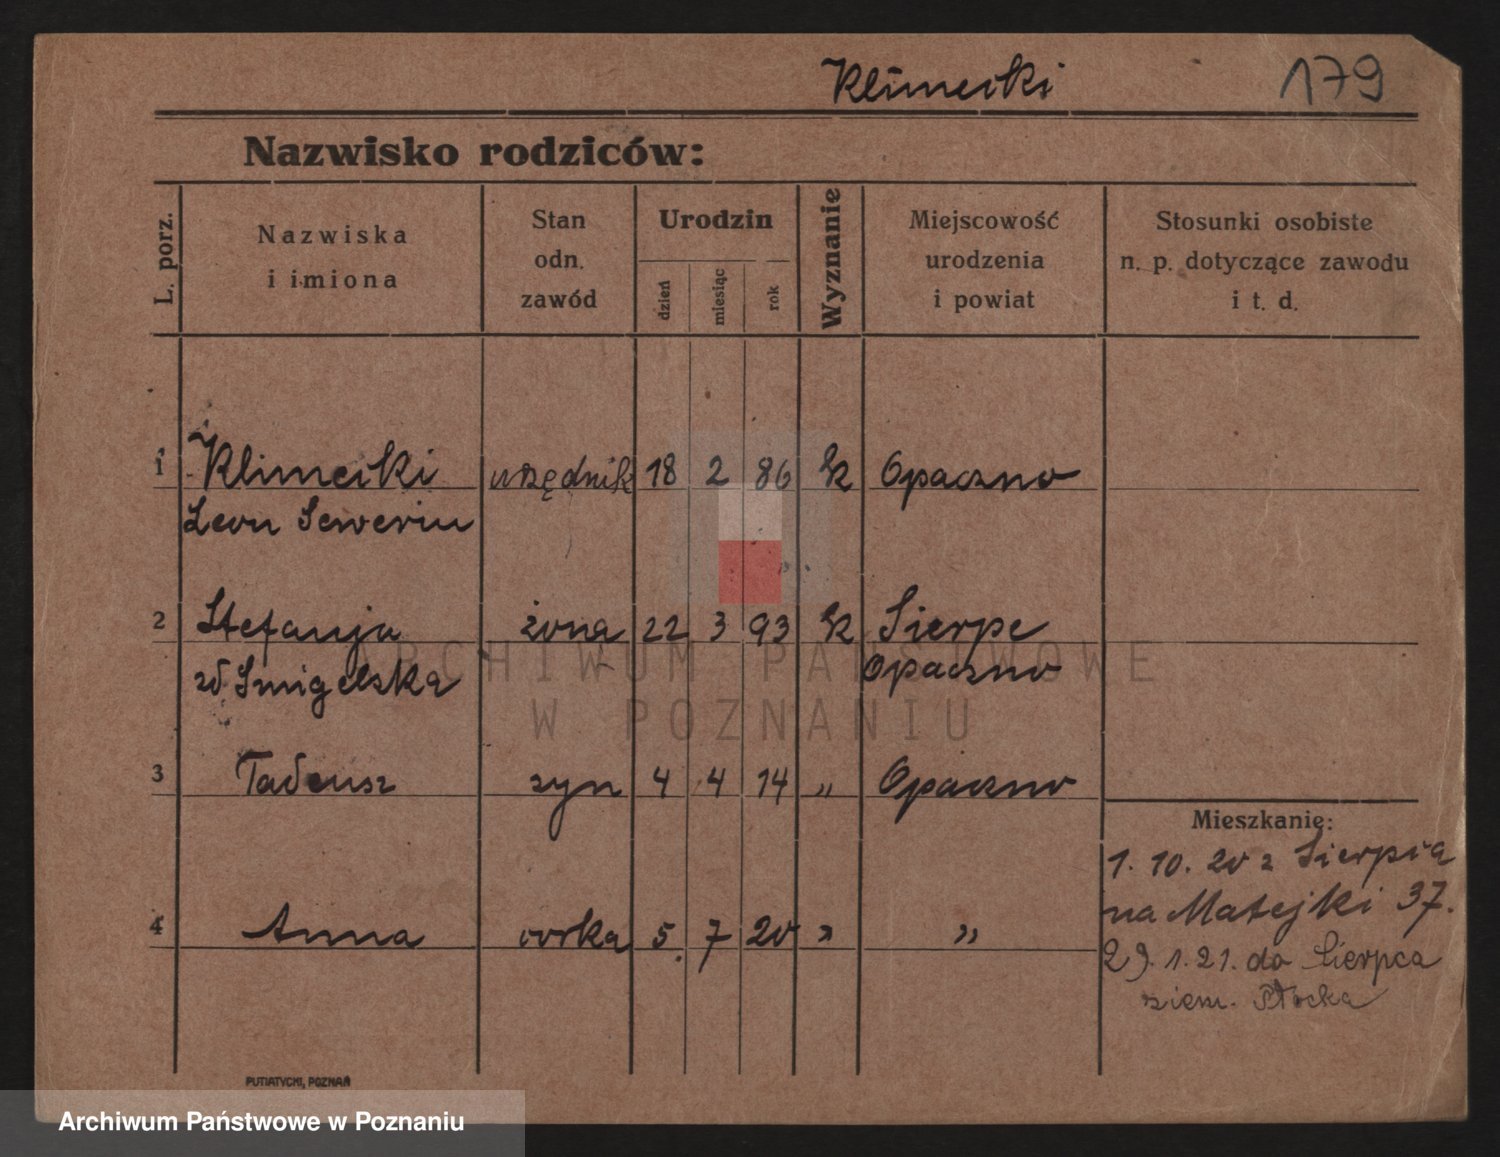 Klimecki 179
Nazwisko rodziców:
L. porz.
Nazwiska
i imiona
Stan
odn.
zawód
Urodzin
dzień
miesiąc
rok
Wyznanie
Miejscowość
urodzenia
i powiat
Stosunki osobiste
n. p. dotyczące zawodu
i t. d.
1 Klimecki urzędnik 18 2 86 rk Opaczno
Leon Sewerin
2 Stefanja żona 22 3 93 rk Sierpc
zd Smigelska Opaczno
ARCHIWUM PAŃSTWOWE
W POZNANIU
3 Tadeusz syn 4 4 14 " Opaczno
Mieszkanie:
1. 10. 20 z Sierpia
na Matejki 37.
4 Anna córka 5. 7 20 " "
29. 1. 21. do Sierpca
ziem. Płocka
PUTIATYCKI, POZNAŃ
Archiwum Państwowe w Poznaniu